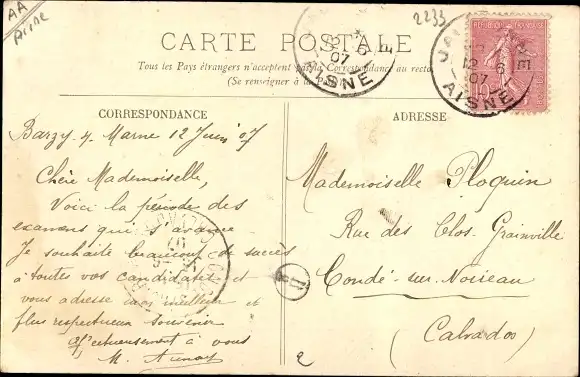 AA
Aisne
2233
CARTE POSTALE
Tous les Pays étrangers n'acceptent pas la Correspondance au recto
(Se renseigner à la Poste)
RÉPUBLIQUE FRANÇAISE
10
12 6
07
AISNE
07
AISNE
CORRESPONDANCE
Barzy s. Marne 12 Juin 07
Chère Mademoiselle,
Voici la période des
examens qui s'avance
Je souhaite beaucoup de succès
à toutes vos candidates et
vous adresse mon meilleur et
plus respectueux souvenir
Affectueusement à vous
M.
ADRESSE
Mademoiselle Ploquin
Rue des Clos Grainville
Condé-sur-Noireau
(Calvados)
2